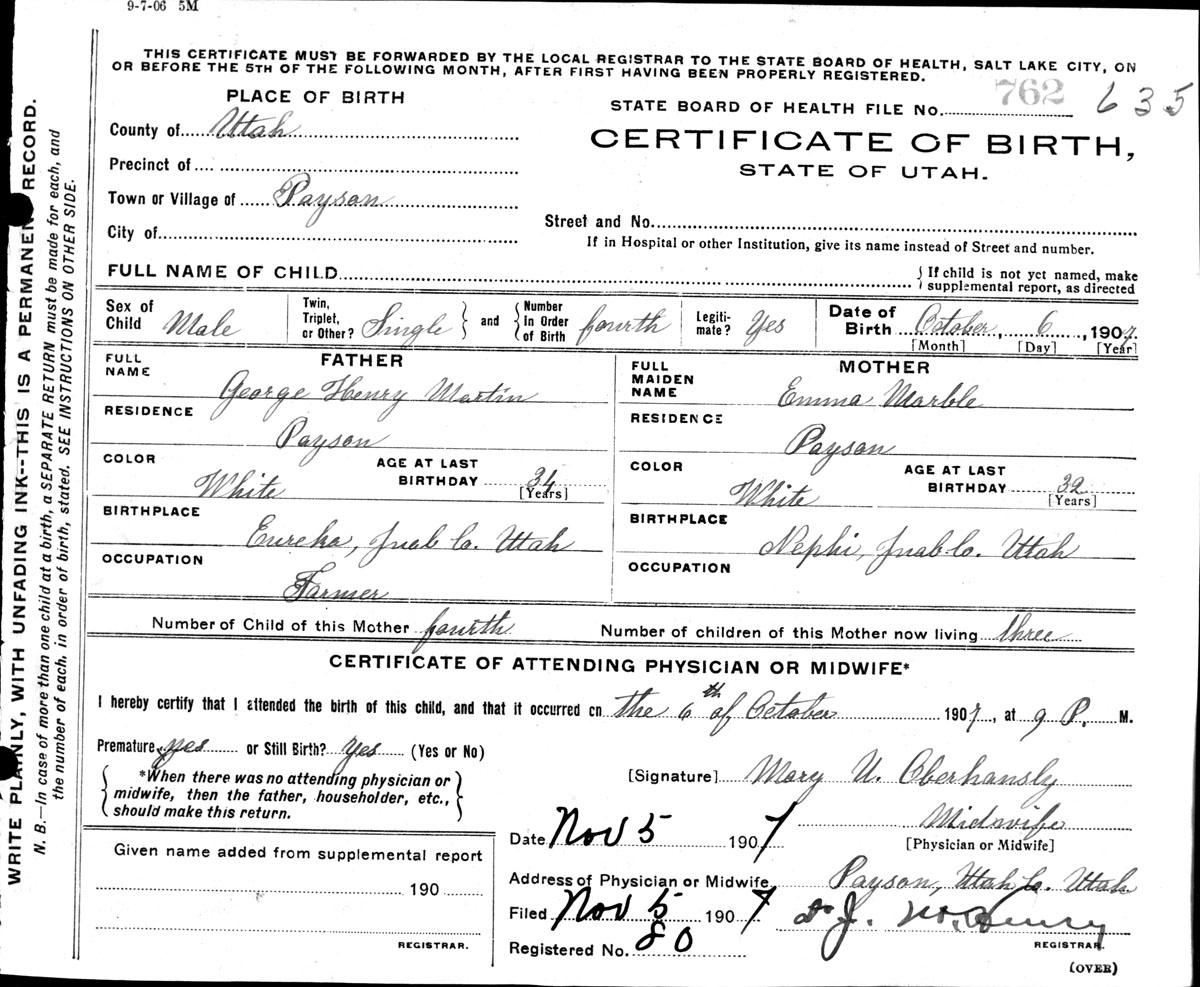 9-7-06 5M
THIS CERTIFICATE MUST BE FORWARDED BY THE LOCAL REGISTRAR TO THE STATE BOARD OF HEALTH, SALT LAKE CITY, ON
OR BEFORE THE 5TH OF THE FOLLOWING MONTH, AFTER FIRST HAVING BEEN PROPERLY REGISTERED.
WRITE PLAINLY, WITH UNFADING INK--THIS IS A PERMANENT RECORD.
N. B.—In case of more than one child at a birth, a SEPARATE RETURN must be made for each, and
the number of each, in order of birth, stated. SEE INSTRUCTIONS ON OTHER SIDE.
PLACE OF BIRTH
County of Utah
Precinct of
Town or Village of Payson
City of
STATE BOARD OF HEALTH FILE No. 762 635
CERTIFICATE OF BIRTH,
STATE OF UTAH.
Street and No.
If in Hospital or other Institution, give its name instead of Street and number.
FULL NAME OF CHILD
{ If child is not yet named, make
supplemental report, as directed
Sex of Child Male
Twin, Triplet, or Other? Single } and { Number In Order of Birth fourth
Legiti-mate? Yes
Date of Birth October, 6, 1907.
[Month] [Day] [Year]
FATHER
FULL NAME
George Henry Martin
RESIDENCE
Payson
COLOR White AGE AT LAST BIRTHDAY 34
[Years]
BIRTHPLACE
Eureka, Juab Co. Utah
OCCUPATION
Farmer
MOTHER
FULL MAIDEN NAME
Emma Marble
RESIDENCE
Payson
COLOR White AGE AT LAST BIRTHDAY 32
[Years]
BIRTHPLACE
Nephi, Juab Co. Utah
OCCUPATION
Number of Child of this Mother fourth Number of children of this Mother now living three
CERTIFICATE OF ATTENDING PHYSICIAN OR MIDWIFE*
I hereby certify that I attended the birth of this child, and that it occurred on the 6th of October 1907, at 9 P. M.
Premature yes or Still Birth? Yes (Yes or No)
{ *When there was no attending physician or
midwife, then the father, householder, etc.,
should make this return. }
[Signature] Mary U. Oberhansly
Midwife
[Physician or Midwife]
Date Nov 5 1907
Address of Physician or Midwife Payson, Utah Co. Utah
Filed Nov 5 1907
Registered No. 80
REGISTRAR.
(OVER)
Given name added from supplemental report
190
REGISTRAR.